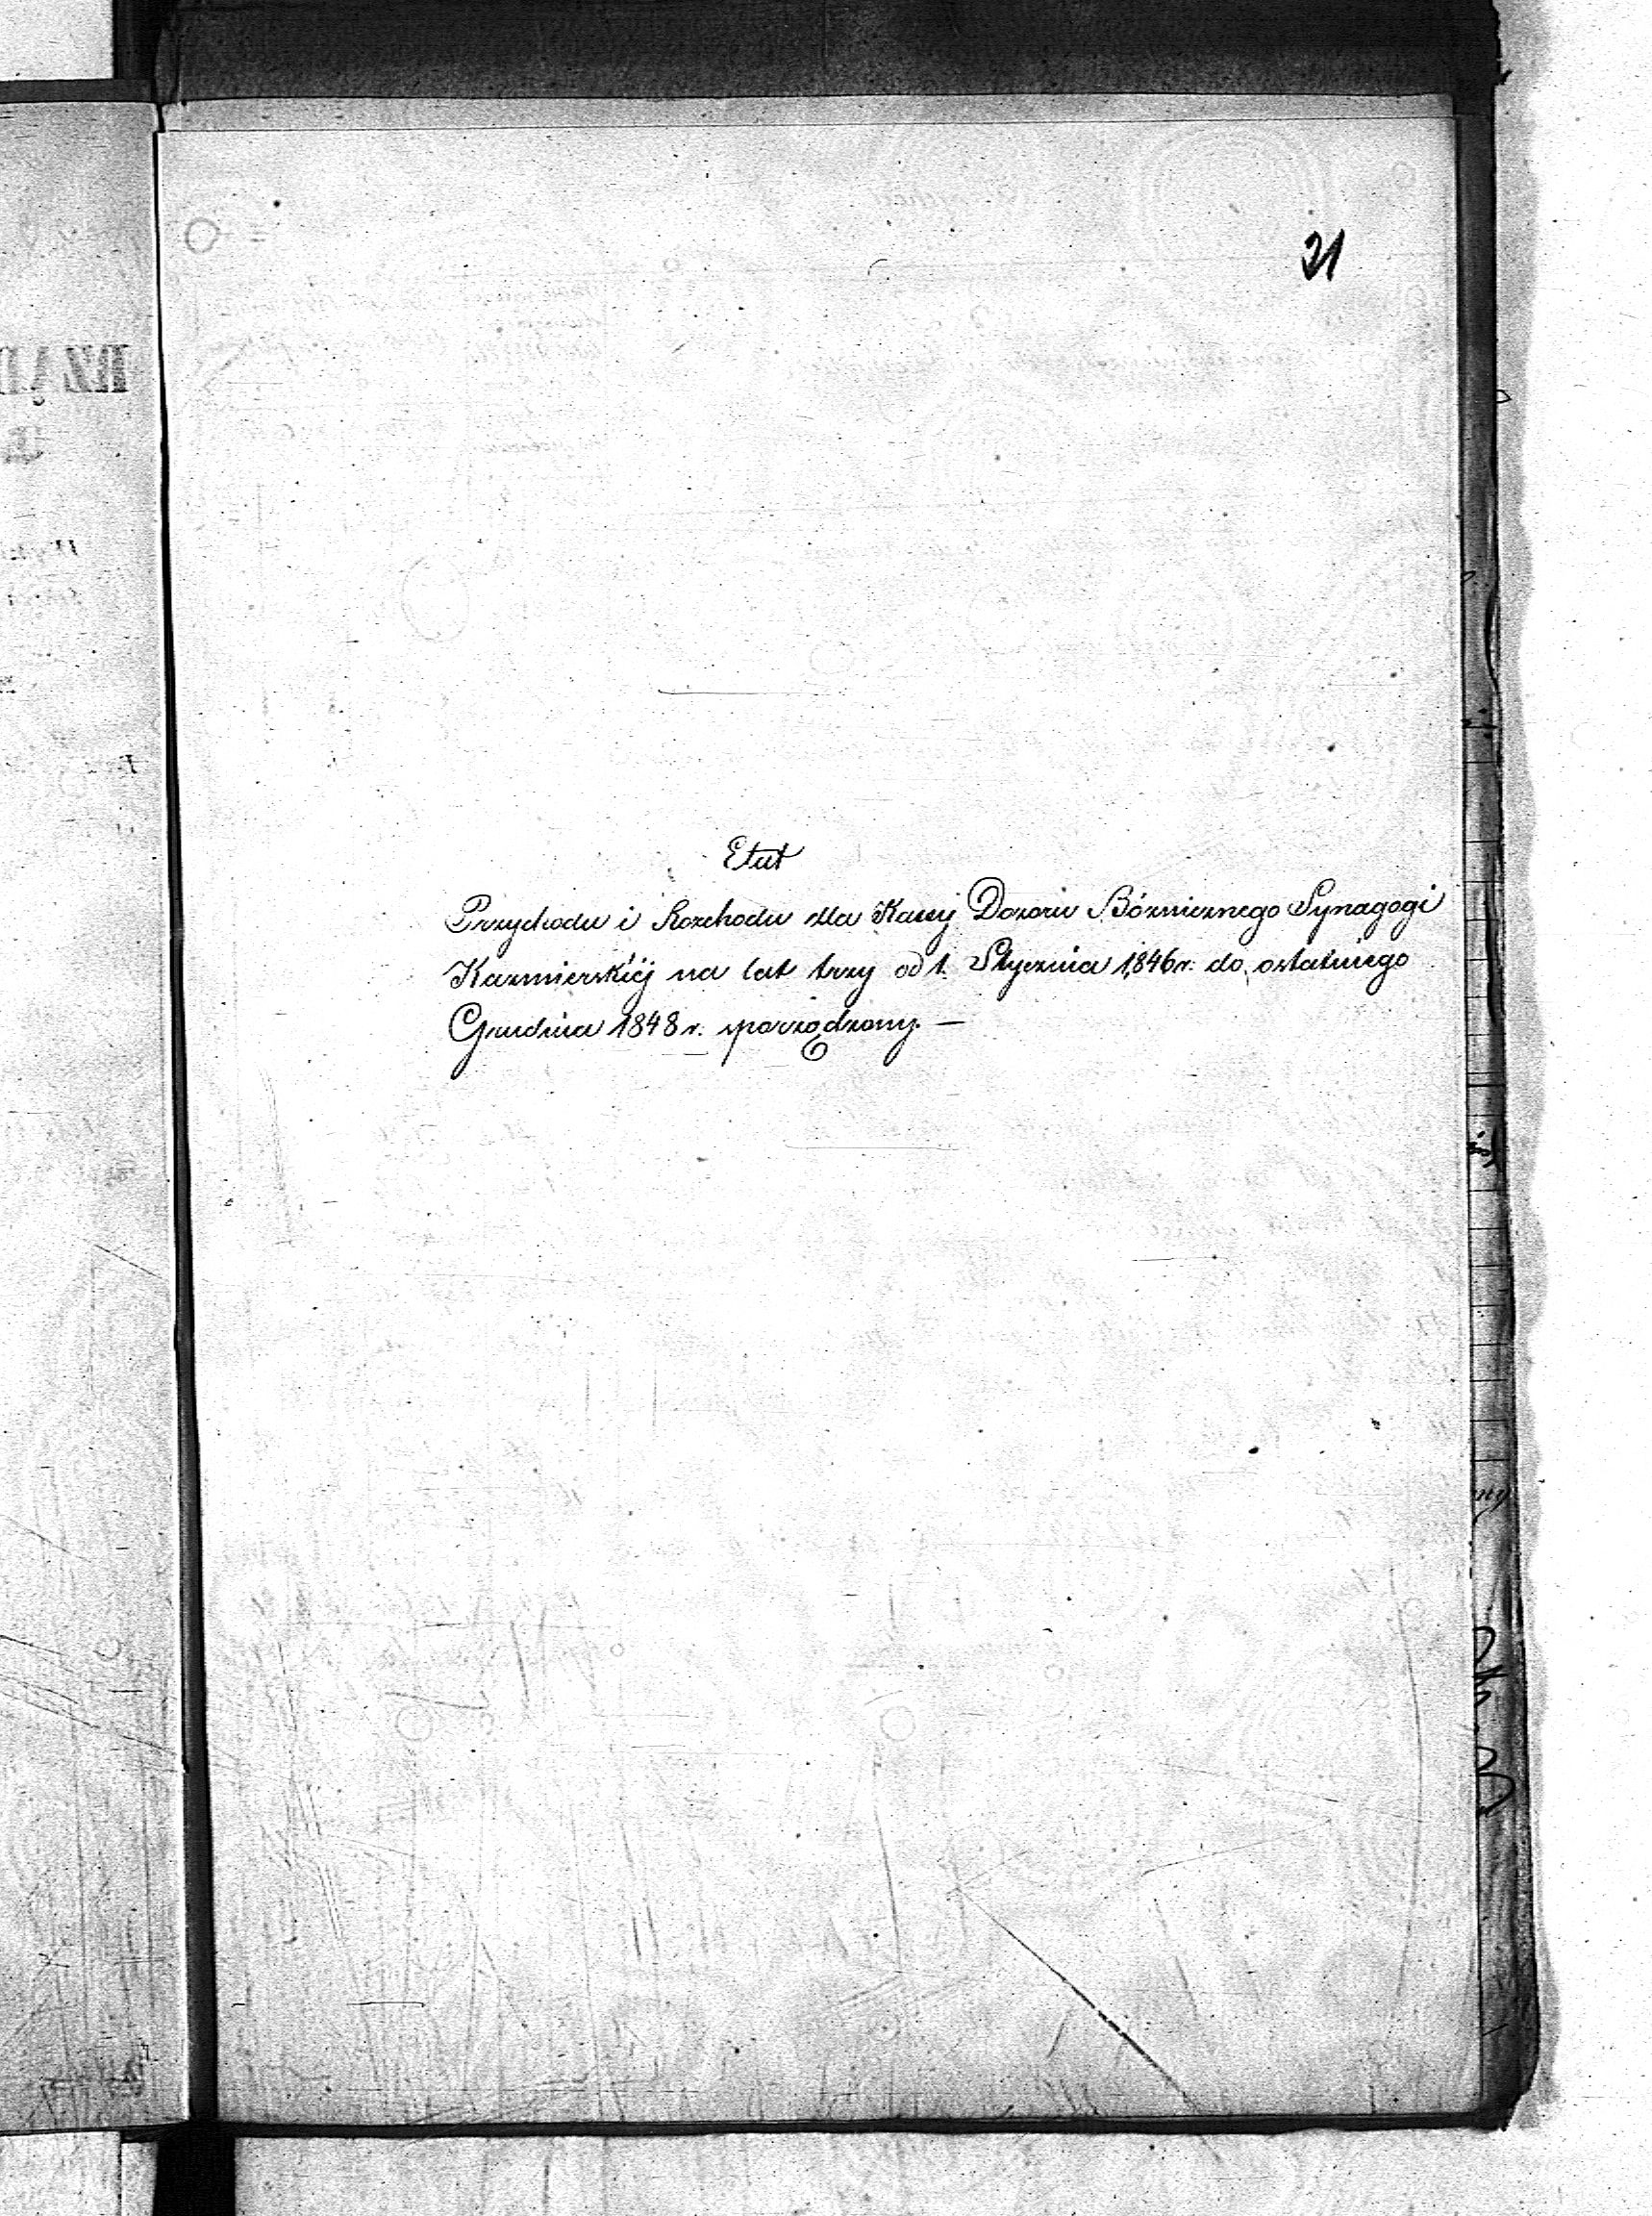 21
Etat
Przychodu i Rozchodu dla Kassy Dozoru Bóżnicznego Synagogi
Kazmierskiéj na lat trzy od 1. Stycznia 1846 r. do ostatniego
Grudnia 1848 r. sporządzony. —